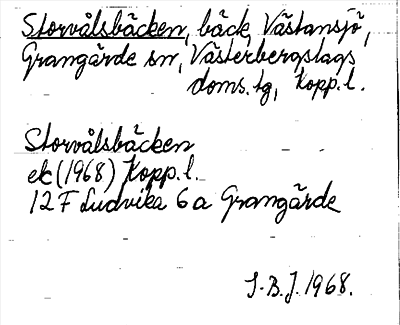 Storvålsbäcken, bäck, Västansjö,
Grangärde sn, Västerbergslags
doms.tg, Kopp.l.
Storvålsbäcken
ek (1968) Kopp.l.
12 F Ludvika 6 a Grangärde
S.B.J. 1968.